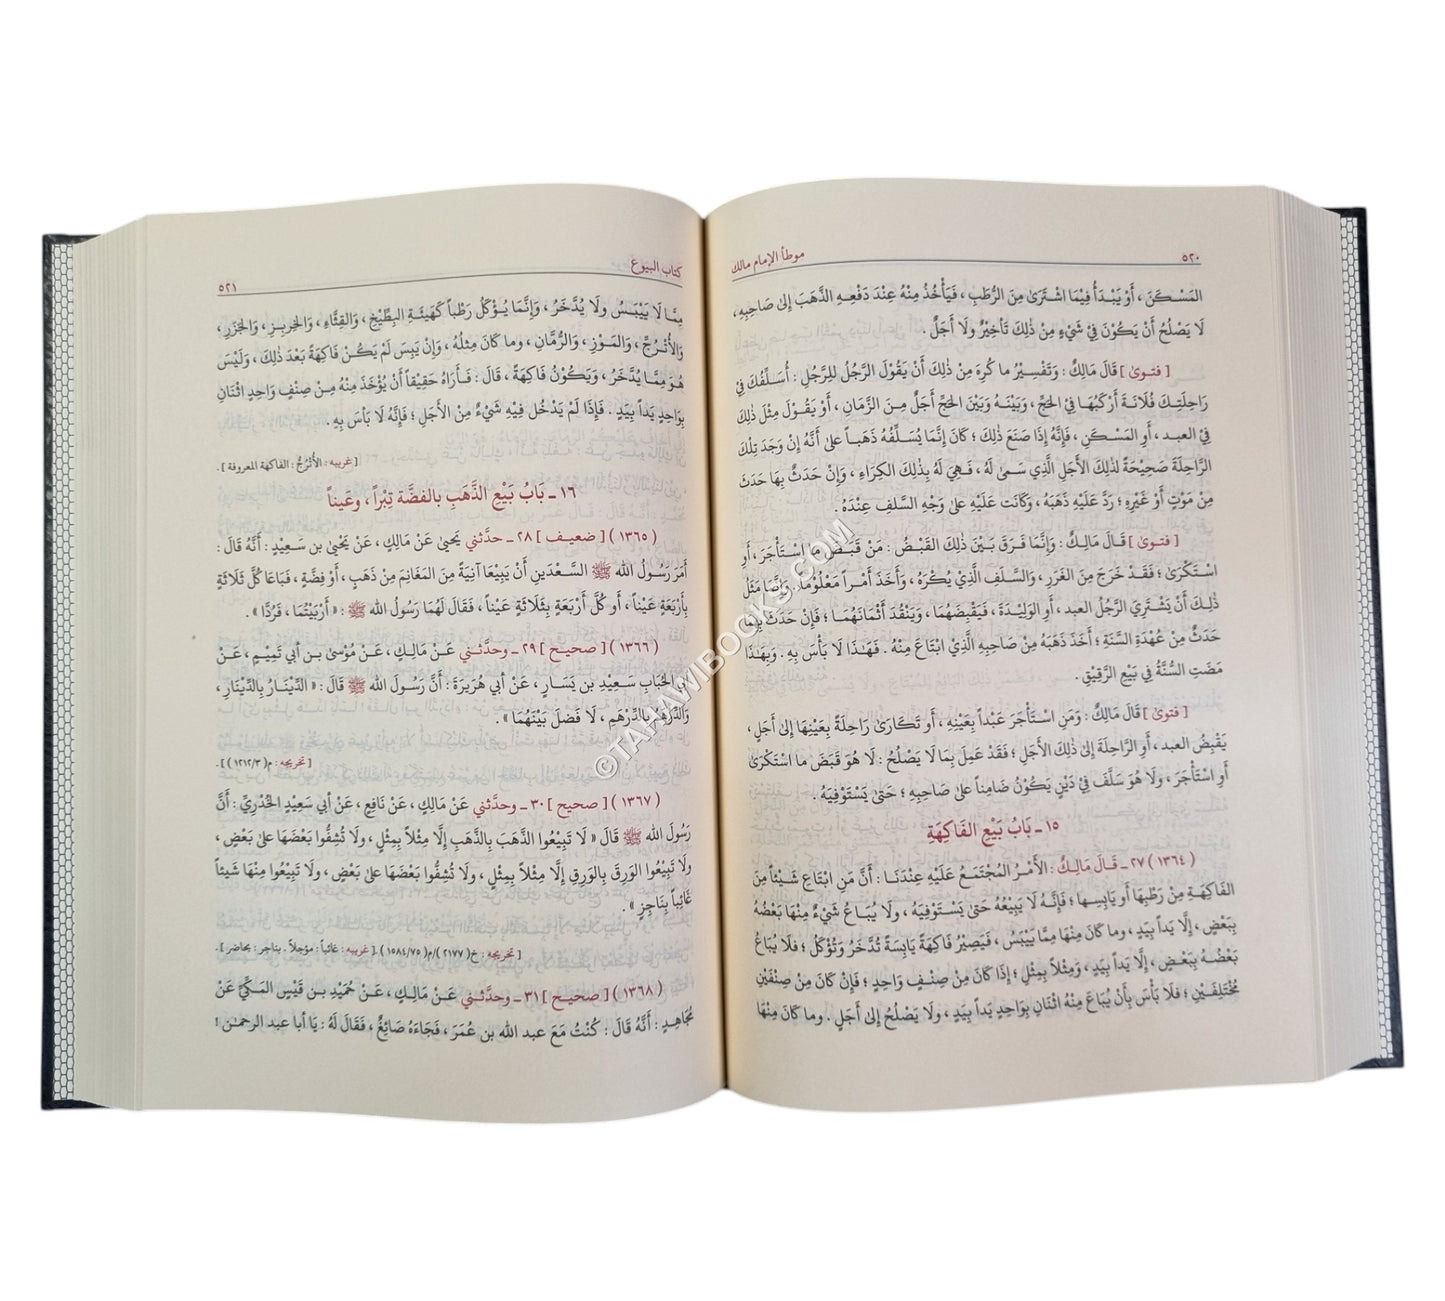 ٥٢٠
موطأ الإمام مالك
المَسْكَنَ ، أَوْ يَبْدَأُ فِيْمَا اشْتَرَىٰ مِنَ الرُّطَبِ ، فَيَأْخُذُ مِنْهُ عِنْدَ دَفْعِهِ الذَّهَبَ إِلىٰ صَاحِبِهِ ،
لَا يَصْلُحُ أَنْ يَكُوْنَ فِيْ شَيْءٍ مِنْ ذَلِكَ تَأخِيْرٌ ولَا أَجَلٌ .
[ فتوىٰ ] قَالَ مَالِكٌ : وَتَفْسِيْرُ ما كُرِهَ مِنْ ذَلِكَ أَنْ يَقُولَ الرَّجُلُ للِرَّجُلِ : أُسَلِّفُكَ فِيْ
رَاحِلَتِكَ فُلَانَةَ أَرْكَبُهَا فِيْ الحَجِّ ، وَبَيْنَهُ وَبَيْنَ الحَجِّ أَجَلٌ مِنَ الزَّمَانِ ، أَوْ يَقُوْلَ مِثْلَ ذَلِكَ
فِيْ العبد ، أَوِ المَسْكَنِ ، فَإِنَّهُ إِذَا صَنَعَ ذَلِكَ ؛ كَانَ إِنَّمَا يُسَلِّفُهُ ذَهَباً علىٰ أَنَّهُ إِنْ وَجَدَ تِلْكَ
الرَّاحِلَةَ صَحِيْحَةً لذَلِكَ الأَجَلِ الَّذِي سَمىٰ لَهُ ، فَهِيَ لَهُ بِذَلِكَ الكِرَاءِ ، وَإِنْ حَدَثَ بِهَا حَدَثَ
مِنْ مَوْتٍ أَوْ غَيْرِهِ ؛ رَدَّ عَلَيْهِ ذَهَبَهُ ، وَكَانَت عَلَيْهِ علىٰ وَجْهِ السَّلفِ عِنْدَهُ .
[ فتوىٰ ] قَالَ مَالِكٌ : وَإِنَّمَا فَرَقَ بَيْنَ ذَلِكَ القَبْضُ : مَنْ قَبَضَ ما اسْتَأْجَرَ ، أَوِ
اسْتَكْرَىٰ ؛ فَقَدْ خَرَجَ مِنَ الغَرَرِ ، وَالسَّلَفِ الَّذِيْ يُكْرَهُ ، وَأَخَذَ أَمْراً مَعْلُوْمَاً . وَإِنَّمَا مَثَلُ
ذَلِكَ أَنْ يَشْتَرِيَ الرَّجُلُ العبد ، أَوِ الوَلِيْدَةَ ، فَيَقْبِضَهُمَا ، وَيَنْقُدَ أَثْمَانَهُمَا ؛ فَإِنْ حَدَثَ بِهِمَا
حَدَثٌ مِنْ عُهْدَةِ السَّنَةِ ؛ أَخَذَ ذَهَبَهُ مِنْ صَاحِبِهِ الَّذِيْ ابْتَاعَ مِنْهُ . فَهَـٰذَا لَا بَأْسَ بِهِ . وَبِهَـٰذَا
مَضَتِ السُّنَّةُ فِي بَيْعِ الرَّقِيْقِ .
[ فتوىٰ ] قَالَ مَالِكٌ : وَمَنِ اسْتَأْجَرَ عَبْداً بِعَيْنِهِ ، أَو تَكَارَىٰ رَاحِلَةً بِعَيْنِهَا إِلىٰ أَجَلٍ ،
يَقْبِضُ العبد ، أَوِ الرَّاحِلَةَ إِلىٰ ذَلِكَ الأَجَلِ ؛ فَقَدْ عَمِلَ بِمَا لَا يَصْلُحُ : لَا هُوَ قَبَضَ ما اسْتَكْرَىٰ
أَوِ اسْتَأْجَرَ ، ولَا هُوَ سَلَّفَ فِي دَيْنٍ يَكُوْنُ ضَامِناً علىٰ صَاحِبِهِ ؛ حَتىٰ يَسْتَوْفِيَهُ .
١٥ ـ بَابُ بَيْعِ الفَاكِهَةِ
( ١٣٦٤ ) ٢٧ ـ قَالَ مَالِكٌ : الأَمْرُ المُجْتَمَعُ عَلَيْهِ عِنْدَنَا : أَنَّ مَنِ ابْتَاعَ شَيْئاً مِنَ
الفَاكِهَةِ مِنْ رَطْبِهَا أَو يَابِسِها ؛ فَإِنَّهُ لَا يَبِيْعُهُ حَتىٰ يَسْتَوْفِيَهُ ، ولَا يُبَاعُ شَيْءٌ مِنْهَا بَعْضُهُ
بِبَعْضٍ ، إِلَّا يَداً بِيَدٍ ، وما كَانَ مِنْهَا مِمَّا يَيْبَسُ ، فَيَصِيْرُ فَاكِهَةً يَابِسَةً تُدَّخَرُ وَتُؤْكَلُ ؛ فلَا يُبَاعُ
بَعْضُهُ بِبَعْضٍ ، إِلَّا يَداً بِيَدٍ ، وَمِثْلاً بِمِثْلٍ ؛ إِذَا كَانَ مِنْ صِنْفٍ وَاحِدٍ ؛ فَإِنْ كَانَ مِنْ صِنْفَيْنِ
مُخْتَلِفَيْنِ ؛ فلَا بَأْسَ بِأَنْ يُبَاعَ مِنْهُ اثْنَانِ بِوَاحِدٍ يَداً بِيَدٍ ، ولَا يَصْلُحُ إِلىٰ أَجَلٍ . وما كَانَ مِنْهَا
كتاب البيوع
٥٢١
مِمَّا لَا يَيْبَسُ ولَا يُدَّخَرُ ، وَإِنَّمَا يُؤْكَلُ رَطْباً كَهَيْئَةِ البِطِّيْخِ ، وَالقِثَّاءِ ، وَالخِربِزِ ، وَالجَزَرِ ،
وَالأُتْرُجِّ ، وَالمَوْزِ ، وَالرُّمَّانِ ، وما كَانَ مِثْلُهُ ، وَإِنْ يَبِسَ لَمْ يَكُنْ فَاكِهَةً بَعْدَ ذَلِكَ ، وَلَيْسَ
هُوَ مِمَّا يُدَّخَرُ ، وَيَكُوْنُ فَاكِهَةً ، قَالَ : فَأَرَاهُ حَقِيْقاً أَنْ يُؤْخَذَ مِنْهُ مِنْ صِنْفٍ وَاحِدٍ اثْنَانِ
بِوَاحِدٍ يَداً بِيَدٍ . فَإِذَا لَمْ يَدْخُل فِيْهِ شَيْءٌ مِنْ الأَجَلِ ؛ فَإِنَّهُ لَا بَأسَ بِهِ .
[ غريبه : الأُتْرُجُّ : الفاكهة المعروفة ] .
١٦ ـ بَابُ بَيْعِ الذَّهَبِ بالفضَّة تِبْراً ، وعَيناً
( ١٣٦٥ ) [ ضعيف ] ٢٨ ـ حدَّثني يحيىٰ عَنْ مَالِكٍ ، عَنْ يَحْيىٰ بن سَعِيْدٍ : أَنَّهُ قَالَ :
أَمَرَ رَسُولُ الله ﷺ السَّعْدَينِ أَنْ يَبِيْعَا آنِيَةً مِنَ المَغَانِمِ مِنْ ذَهَبٍ ، أَوْ فِضَّةٍ ، فَبَاعَا كُلَّ ثَلَاثَةٍ
بِأَرْبَعَةٍ عَيْناً ، أَو كُلَّ أَرْبَعَةٍ بِثَلَاثَةٍ عَيْناً ، فَقَالَ لَهُمَا رَسُولُ الله ﷺ : « أَرْبَيْتُمَا ، فَرُدَّا » .
( ١٣٦٦ ) [ صحيح ] ٢٩ ـ وحدَّثني عَنْ مَالِكٍ ، عَنْ مُوْسىٰ بن أبي تَمِيْمٍ ، عَنْ
أبي الحُبَابِ سَعِيْدِ بن يَسَارٍ ، عَنْ أبي هُرَيرَةَ : أَنَّ رَسُولَ الله ﷺ قَالَ : « الدِّيْنَارُ بِالدِّيْنَارِ ،
وَالدِّرْهَمُ بِالدِّرْهَمِ ، لَا فَضلَ بَيْنَهُمَا » .
[ تخريجه : م( ٣/ ١٢١٢ ) ] .
( ١٣٦٧ ) [ صحيح ] ٣٠ ـ وحدَّثني عَنْ مَالِكٍ ، عَنْ نَافِعٍ ، عَنْ أبي سَعِيْدٍ الخُدْرِيِّ : أَنَّ
رَسُولَ الله ﷺ قَالَ « لَا تَبِيْعُوا الذَّهَبَ بِالذَّهَبِ إِلَّا مِثْلاً بِمِثْلٍ ، ولَا تُشِفُّوا بَعْضَهَا علىٰ بَعْضٍ ،
ولَا تَبِيْعُوا الوَرِقَ بِالوَرِقِ إِلَّا مِثْلاً بِمِثْلٍ ، ولَا تُشِفُّوا بَعْضَهَا علىٰ بَعْضٍ ، ولَا تَبِيْعُوا مِنْهَا شَيئاً
غَائِباً بِنَاجِزٍ » .
[ تخريجه : خ( ٢١٧٧ )/م( ٧٥/ ١٥٨٤ ) .[ غريبه : غائباً : مؤجلاً . بناجر : بحاضر ] .
( ١٣٦٨ ) [ صحيح ] ٣١ ـ وحدَّثني عَنْ مَالِكٍ ، عَنْ حُمَيْدِ بن قَيْسٍ المَكِّيِّ عَنْ
مُجَاهِدٍ : أَنَّهُ قَالَ : كُنْتُ مَعَ عبد الله بن عُمَرَ ، فَجَاءَهُ صَائِغٌ ، فَقَالَ لَهُ : يَا أبا عبد الرحمـٰن !
©TAHAWIBOOKS.COM